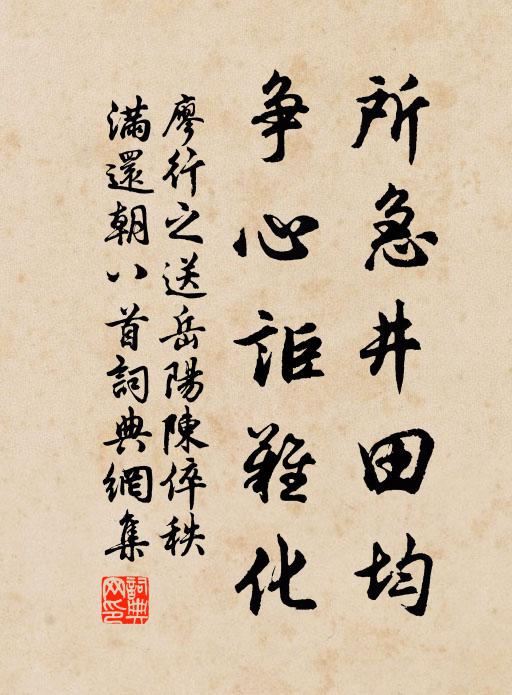 所急井田均
争心詎難化
廖行之送岳陽陳倅秩
滿還朝八首詞典網集
詞典网印